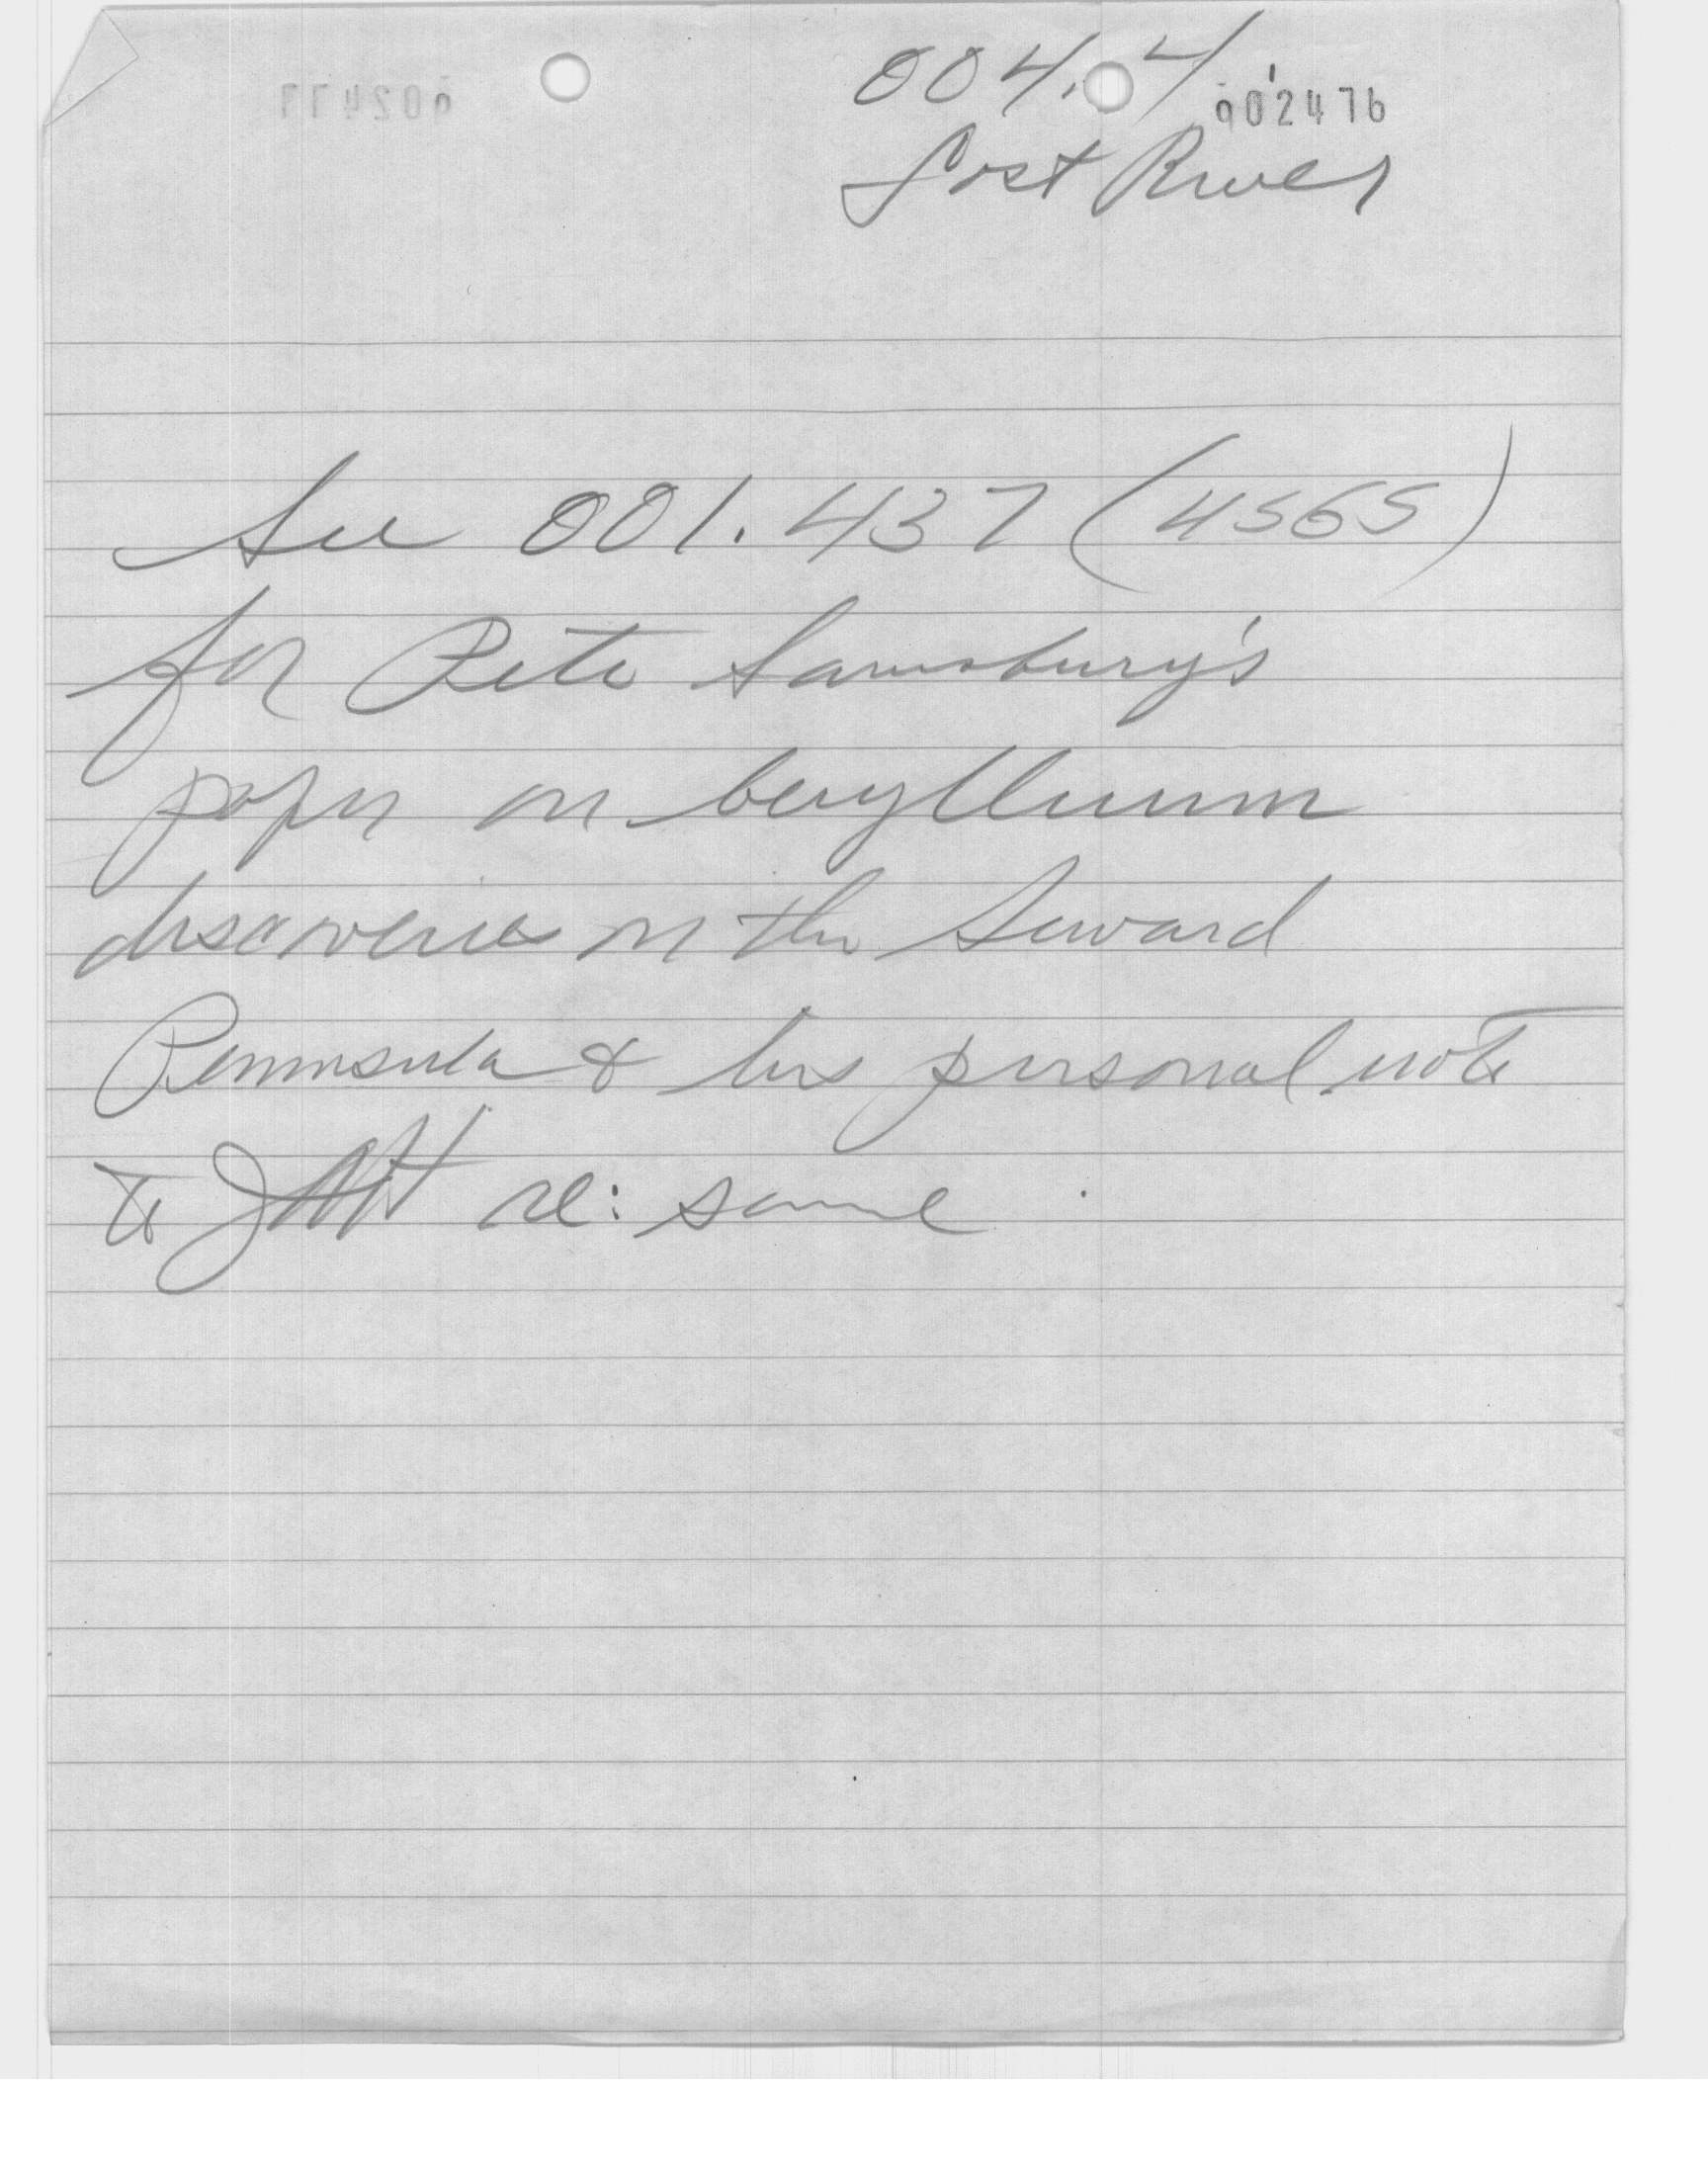 004.4
002476
Lost River
See 001.437 (4565)
for Pete Sainsbury's
paper on beryllium
discoveries on the Seward
Peninsula & his personal note
to re: same